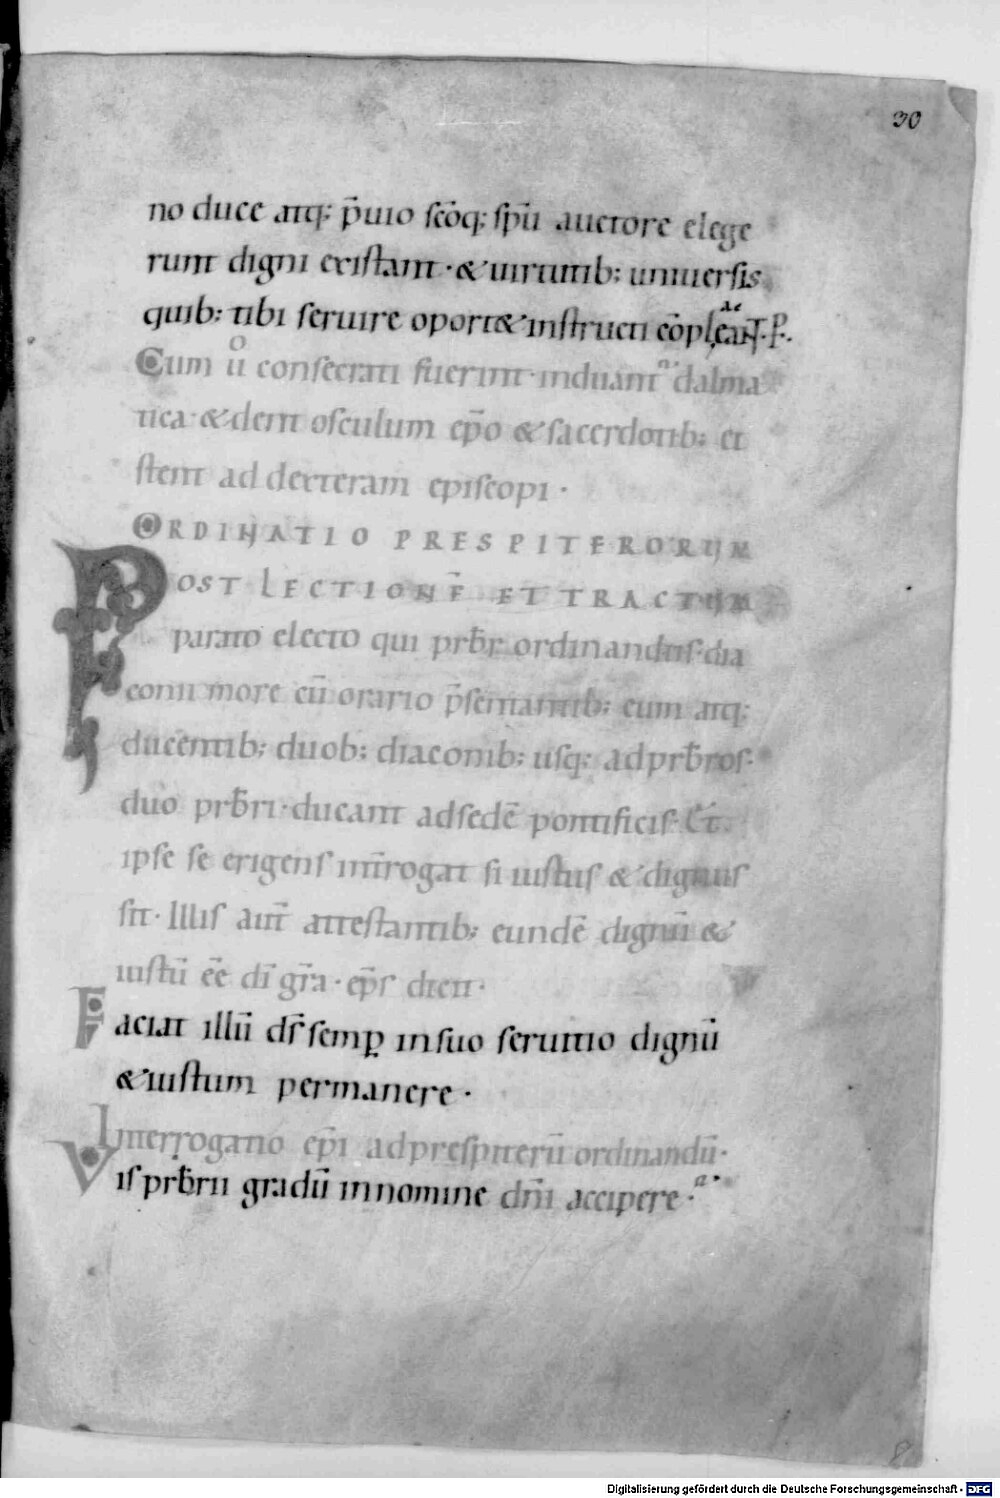 30
no duce atq; p̄uio sc̄oq; sp̄u auctore elege
runt digni existant · & uirtutib; uniuersis
quib; tibi seruire oport& instructi cōpleant
Cum u̔o consecrati fuerint · induant dalma
tica · & dent osculum ep̄o & sacerdotib; et
stent ad dexteram episcopi ·
ORDINATIO PRESPITERORUM
POST LECTIONĒ ET TRACTUM
parato electo qui prb̄r ordinandus · dia
conii more cū orario p̄sentantib; eum atq;
ducentib; duob; diaconib; usq; ad prb̄ros ·
duo prb̄ri · ducant ad sedē pontificis · Et
ipse se erigens int̄rogat si iustus & dignus
sit · Illis aut̄ attestantib; eundē dignū &
iustū ēe dī gr̄a · ep̄s dicit ·
Faciat illū ds̄ semp̲ in suo seruitio dignū
& iustum permanere ·
Interrogatio ep̄i ad prespiterū ordinandū ·
Vis prb̄rii gradū in nomine dn̄i accipere ·
Digitalisierung gefördert durch die Deutsche Forschungsgemeinschaft - DFG